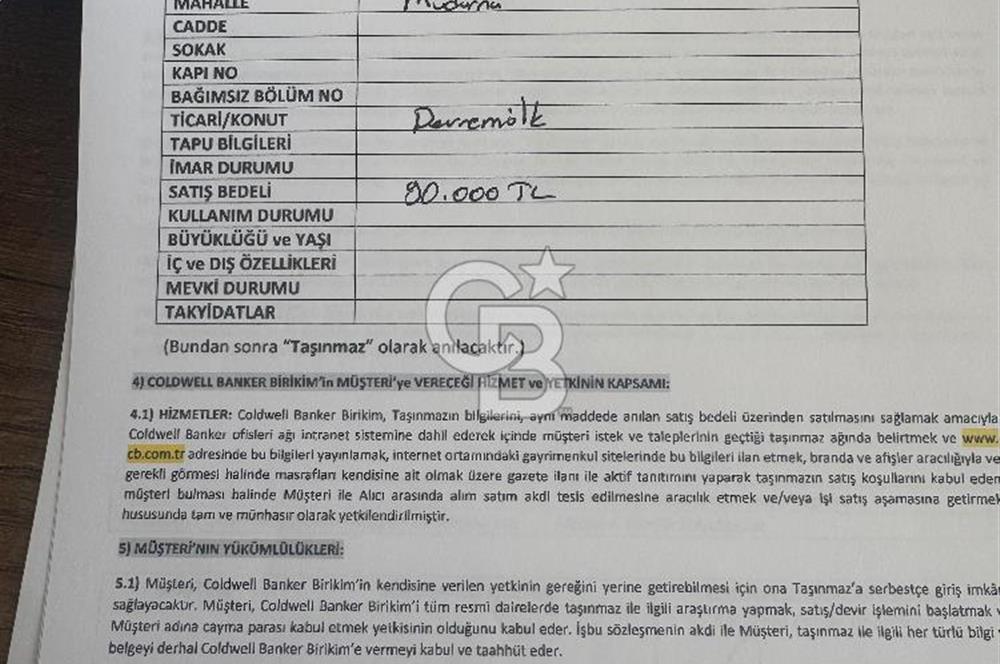 MAHALLE Mudurnu
CADDE
SOKAK
KAPI NO
BAĞIMSIZ BÖLÜM NO
TİCARİ/KONUT Devremülk
TAPU BİLGİLERİ
İMAR DURUMU
SATIŞ BEDELİ 90.000 TL
KULLANIM DURUMU
BÜYÜKLÜĞÜ ve YAŞI
İÇ ve DIŞ ÖZELLİKLERİ
MEVKİ DURUMU
TAKYİDATLAR
CB
(Bundan sonra “Taşınmaz” olarak anılacaktır.)
4) COLDWELL BANKER BİRİKİM’in MÜŞTERİ’ye VERECEĞİ HİZMET ve YETKİNİN KAPSAMI:
4.1) HİZMETLER: Coldwell Banker Birikim, Taşınmazın bilgilerini, aynı maddede anılan satış bedeli üzerinden satılmasını sağlamak amacıyla
Coldwell Banker ofisleri ağı intranet sistemine dahil ederek içinde müşteri istek ve taleplerinin geçtiği taşınmaz ağında belirtmek ve www.
cb.com.tr adresinde bu bilgileri yayınlamak, internet ortamındaki gayrimenkul sitelerinde bu bilgileri ilan etmek, branda ve afişler aracılığıyla ve
gerekli görmesi halinde masrafları kendisine ait olmak üzere gazete ilanı ile aktif tanıtımını yaparak taşınmazın satış koşullarını kabul eden
müşteri bulması halinde Müşteri ile Alıcı arasında alım satım akdi tesis edilmesine aracılık etmek ve/veya işi satış aşamasına getirmek
hususunda tam ve münhasır olarak yetkilendirilmiştir.
5) MÜŞTERİ’NIN YÜKÜMLÜLÜKLERİ:
5.1) Müşteri, Coldwell Banker Birikim’in kendisine verilen yetkinin gereğini yerine getirebilmesi için ona Taşınmaz’a serbestçe giriş imkâ
sağlayacaktır. Müşteri, Coldwell Banker Birikim’i tüm resmi dairelerde taşınmaz ile ilgili araştırma yapmak, satış/devir işlemini başlatmak
Müşteri adına cayma parası kabul etmek yetkisinin olduğunu kabul eder. İşbu sözleşmenin akdi ile Müşteri, taşınmaz ile ilgili her türlü bilgi
belgeyi derhal Coldwell Banker Birikim’e vermeyi kabul ve taahhüt eder.